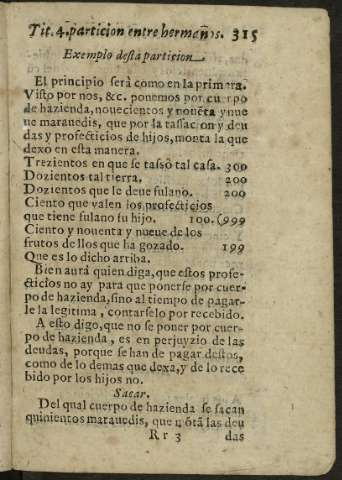 Tit. 4. particion entre hermanos. 315
Exemplo desta particion.
El principio serà como en la primera.
Visto por nos, &c. ponemos por cuerpo
de hazienda, nouecientos y nouēta y nue
ue marauedis, que por la tassacion y deu
das y profecticios de hijos, monta la que
dexo en esta manera.
Trezientos en que se tassò tal casa. 300
Dozientos tal tierra. 200
Dozientos que le deue fulano. 200
Ciento que valen los profecticios
que tiene fulano su hijo. 100. (999
Ciento y nouenta y nueue de los
frutos de llos que ha gozado. 199
Que es lo dicho arriba.
Bien aurà quien diga, que estos profe-
cticios no ay para que ponerse por cuer-
po de hazienda, sino al tiempo de pagar-
le la legitima, contarselo por recebido.
A esto digo, que no se poner por cuer-
po de hazienda, es en perjuyzio de las
deudas, porque se han de pagar destos,
como de lo demas que dexa, y de lo rece
bido por los hijos no.
Sacar.
Del qual cuerpo de hazienda se sacan
quinientos marauedis, que mōtā las deu
Rr 3 das